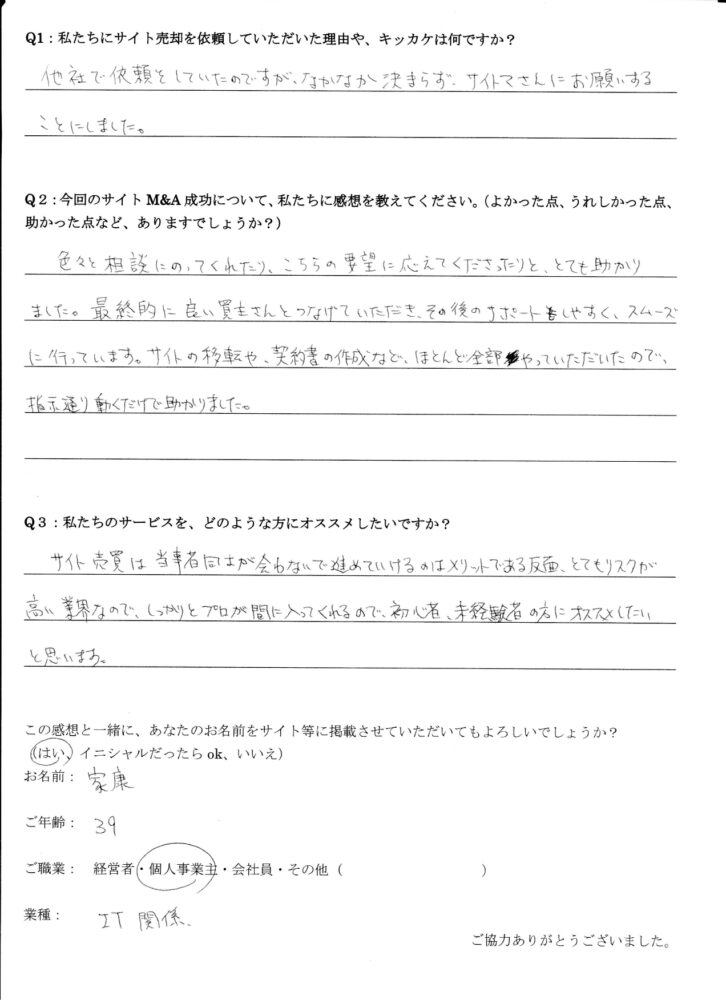 Q1：私たちにサイト売却を依頼していただいた理由や、キッカケは何ですか？
他社で依頼をしていたのですが、なかなか決まらず、サイトマさんにお願いする
ことにしました。
Q２：今回のサイト M&A 成功について、私たちに感想を教えてください。（よかった点、うれしかった点、
助かった点など、ありますでしょうか？）
色々と相談にのってくれたり、こちらの要望に応えてくださったりと、とても助かり
ました。最終的に良い買主さんとつなげていただき、その後のサポートもしやすく、スムーズ
に行っています。サイトの移転や、契約書の作成など、ほとんど全部やっていただいたので、
指示通り動くだけで助かりました。
Q３：私たちのサービスを、どのような方にオススメしたいですか？
サイト売買は当事者同士が会わないで進めていけるのはメリットである反面、とてもリスクが
高い業界なので、しっかりとプロが間に入ってくれるので、初心者、未経験者の方にオススメしたい
と思います。
この感想と一緒に、あなたのお名前をサイト等に掲載させていただいてもよろしいでしょうか？
（はい、イニシャルだったら ok、いいえ）
お名前： 家康
ご年齢： 39
ご職業： 経営者・個人事業主・会社員・その他（ ）
業種： IT 関係、
ご協力ありがとうございました。